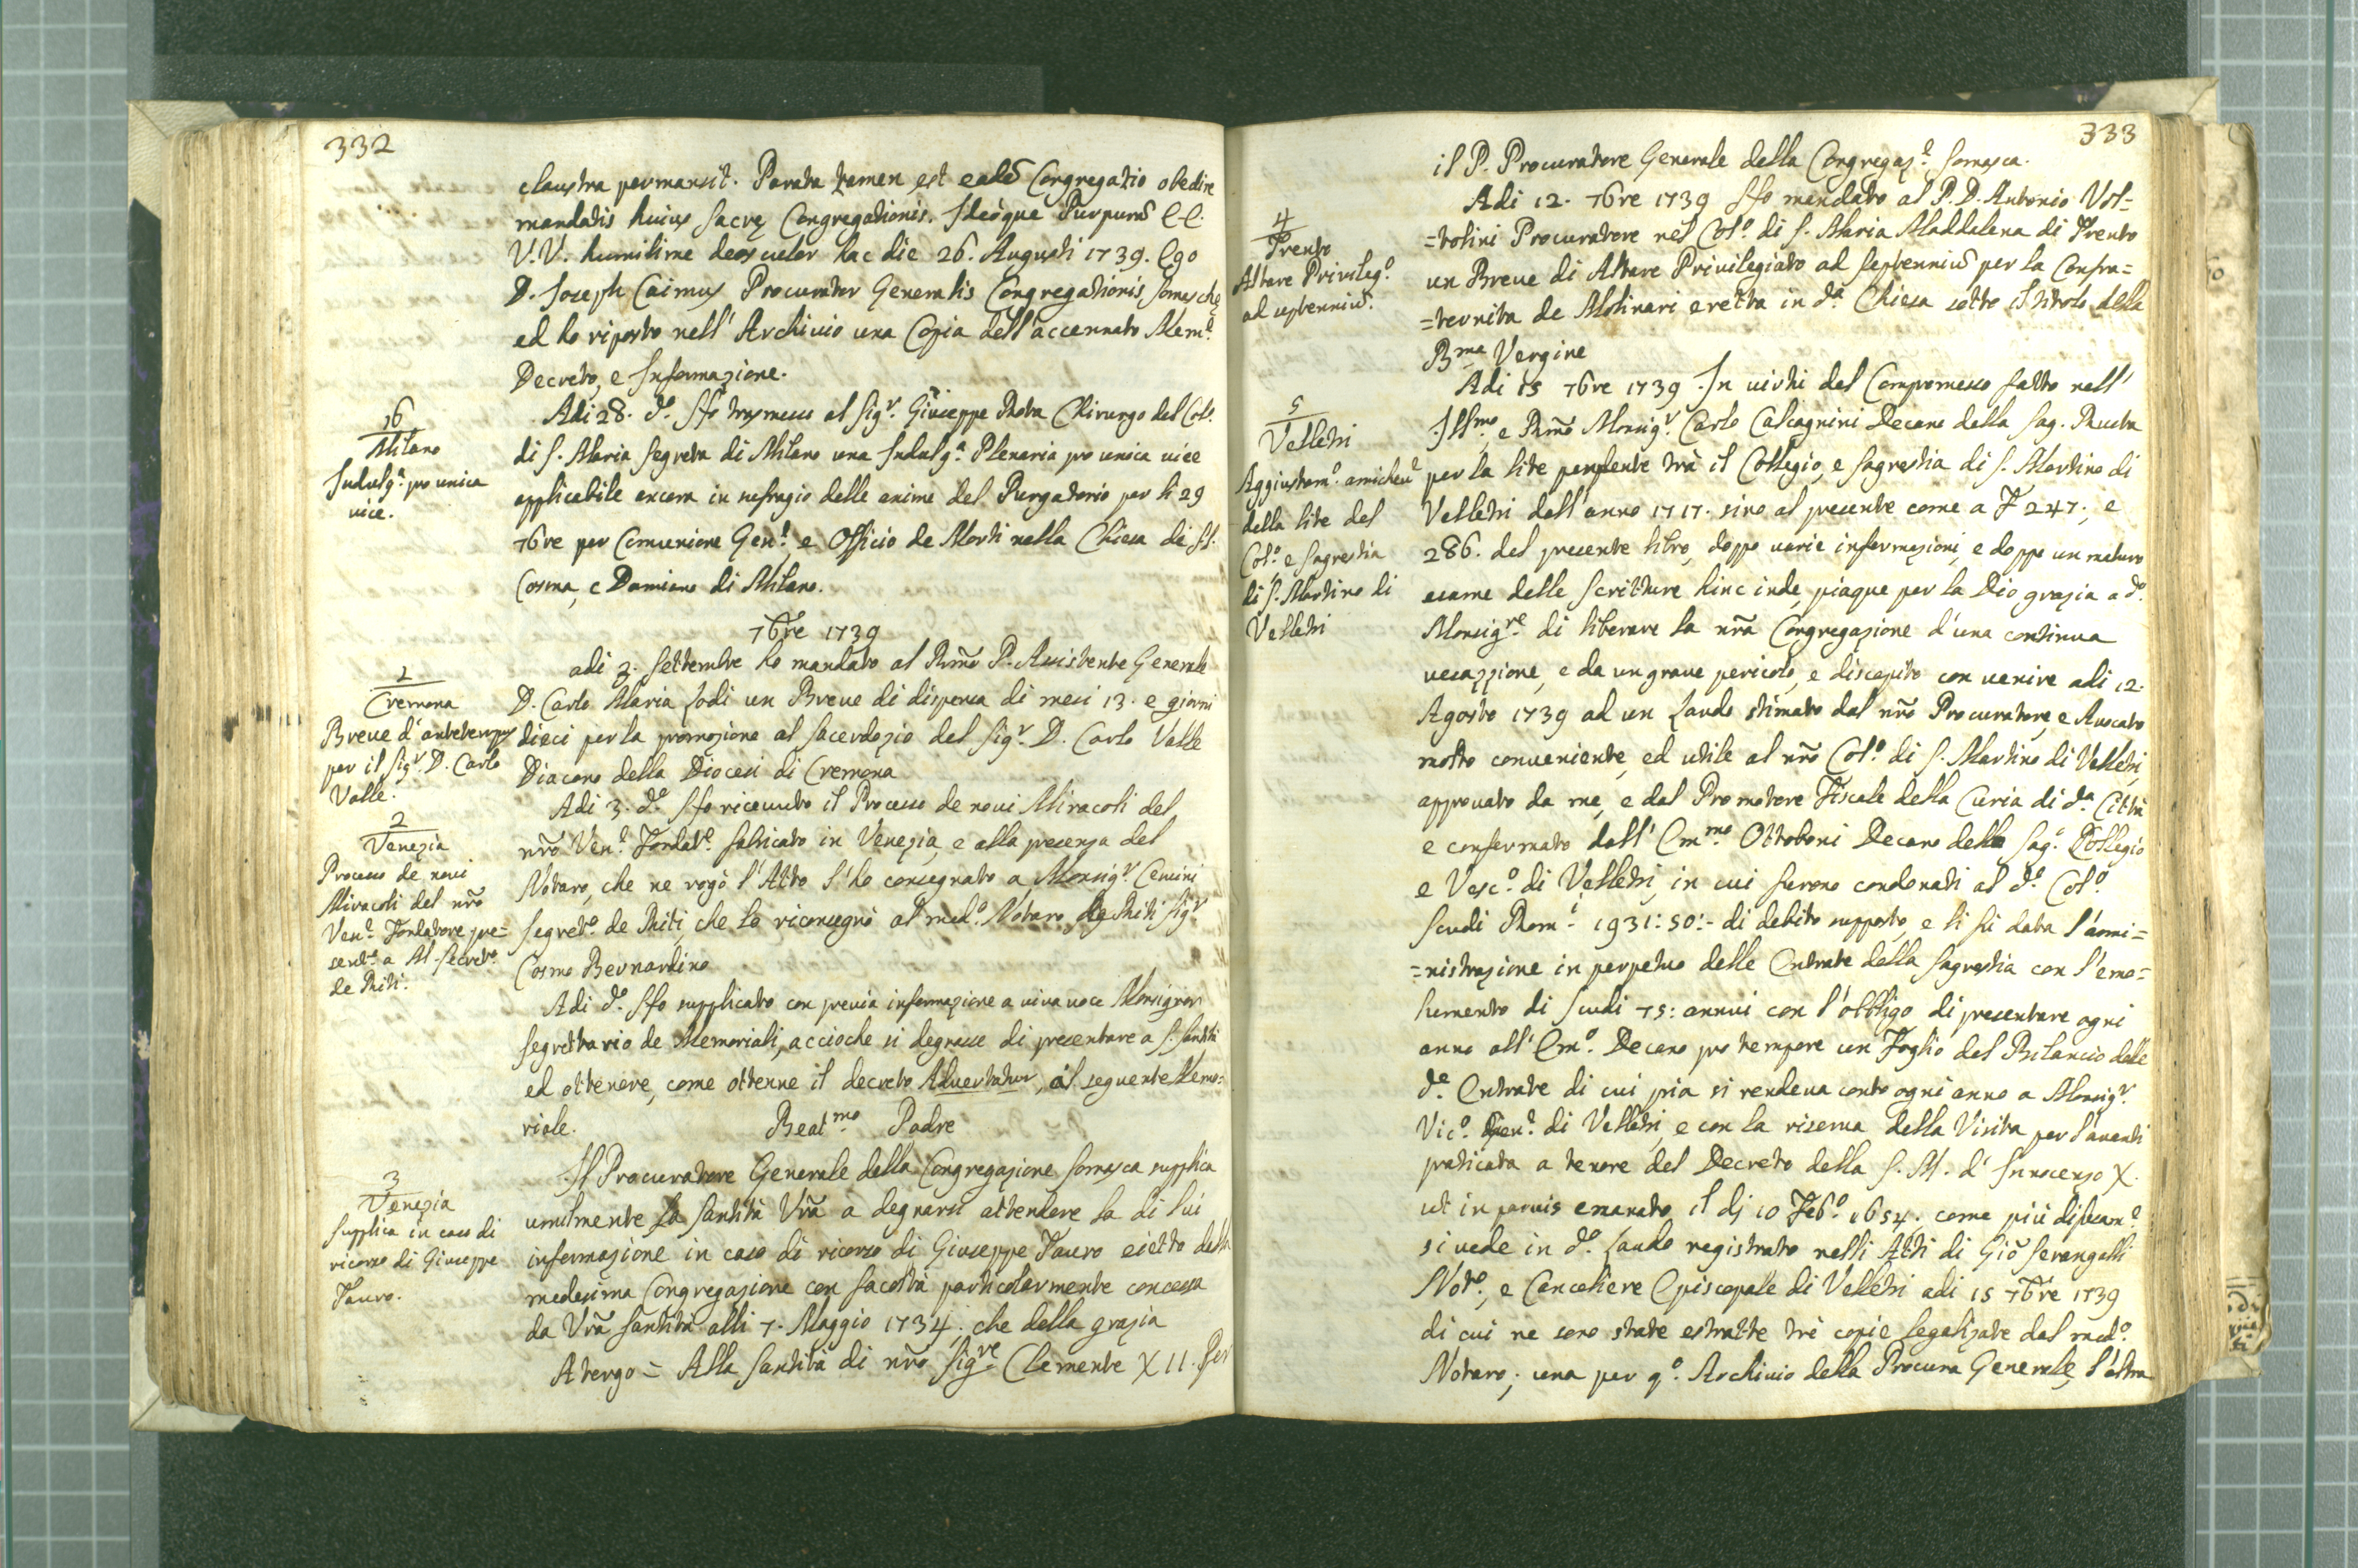 332
claustra permansit. Parata tamen est eadẽ Congregatio obedire
mandatis huius Sacrę Congregationis. Ideòque Purpurã E.E.
V.V. humilime deosculor hac die 26. Augusti 1739. Ego
D. Joseph Caimus Procurator Generalis Congregationis Somaschę
ed ho riposto nell' Archivio una Copia dell' accennato Mem.e
Decreto, e Informazione.
16
Milano
Indulg.a pro unica
vice.
Adi 28. d.o Ho trasmesso al Sig.r Giuseppe Rota Chirurgo del Col.o
di S. Maria Segreta di Milano una Indulg.a Plenaria pro unica vice
applicabile ancora in sufragio delle anime del Purgatorio per li 29
7bre per Comunione Gen.e, e Officio de Morti nella Chiesa di SS.
Cosma, e Damiano di Milano.
7bre 1739
1
Cremona
Breve d'antetempus
per il Sig.r D. Carlo
Valle.
adi 3. Settembre ho mandato al Rmõ P. Assistente Generale
D. Carlo Maria Lodi un Breve di dispensa di mesi 13. e giorni
dieci per la promozione al Sacerdozio del Sig.r D. Carlo Valle
Diacono della Diocesi di Cremona
2
Venezia
Processo de novi
Miracoli del nrõ
Ven.e Fondatore pre=
sent.o a M. Secret.o
de Riti.
Adi 3. d.o Ho ricevuto il Processo de novi Miracoli del
nrõ Ven.e Fondat.e fabricato in Venezia, e alla presenza del
Notaro, che ne rogò l'Atto l'ho consegnato a Monsig.r Cenini
Segret.o de Riti, che lo riconsegnò al med.o Notaro de Riti Sig.r
Cosmo Bernardino
Adi d.o Ho supplicato con previa informazione a viva voce Monsignor
Segrettario de Memoriali, accioche si degnasse di presentare a S. Santità
ed ottenere, come ottenne il decreto Advertatur, al seguente Memo=
riale.
Beat.mo Padre
3
Venezia
Supplica in caso di
ricorso di Giuseppe
Tauro.
Il Procuratore Generale della Congregazione Somasca supplica
umilmente la Santità Vrã a degnarsi attendere la di lui
informazione in caso di ricorso di Giuseppe Tauro eietto dalla
medesima Congregazione con facoltà particolarmente concessa
da Vrã Santità alli 7. Maggio 1734. che della grazia
A tergo = Alla Santità di nrõ Sig.re Clemente XII. Per
333
il P. Procuratore Generale della Congregaz.e Somasca.
4
Trento
Altare Privileg.o
ad septenniũ.
Adi 12. 7bre 1739 Ho mandato al P. D. Antonio Vol=
=tolini Procuratore nel Col.o di S. Maria Maddalena di Trento
un Breve di Altare Privilegiato ad septenniũ per la Confra=
=ternita de Molinari eretta in d.a Chiesa sotto il titolo della
B.ma Vergine
5
Velletri
Aggiustam.o amicheu.e
della lite del
Col.o e Sagrestia
di S. Martino di
Velletri
Adi 15 7bre 1739 In virtù del Compromesso fatto nell'
Ill.mo, e Rmõ Monsig.r Carlo Calcagnini Decano della Sag. Ruota
per la lite pendente trà il Collegio, e Sagrestia di S. Martino di
Velletri dall'anno 1717. sino al presente come a F 247., e
286. del presente libro, doppo varie informazioni, e doppo un maturo
esame delle Scritture hinc inde, piaque per la Dio grazia a d.o
Monsig.re di liberare la nrã Congregazione d'una continua
vessazzione, e da un grave pericolo, e discapito con venire adi 12.
Agosto 1739 ad un Laudo stimato dal nrõ Procuratore, e Avocato
molto conveniente, ed utile al nrõ Col.o di S. Martino di Velletri,
approvato da me, e dal Promotore Fiscale della Curia di d.a Città
e confermato dall' Em.mo Ottoboni Decano delle Sag.o Collegio
e Vesc.o di Velletri, in cui furono condonati al d.o Col.o
Scudi Rom.i 1931:50:- di debito supposto, e li fù data l'ami=
=nistrazione in perpetuo delle Entrate della Sagrestia con l'emo=
lumento di Scudi 75: annui con l'obbligo di presentare ogni
anno all' Em.o Decano pro tempore un Foglio del Bilancio delle
d.e Entrate di cui pria si rendeva conto ogni anno a Monsig.r
Vic.o Gen.e di Velletri, e con la riserva della Visita per l'avanti
praticata a tenore del Decreto della S. M. d' Innocenzo X.
ut in parvis emanato il dj 10 Feb.o 1654. come più difusam.e
si vede in d.o Laudo registrato nelli Atti di Giõ Serangelli
Not.o, e Canceliere Episcopale di Velletri adi 15 7bre 1739
di cui ne sono state estratte trè copie legalizate dal med.o
Notaro; una per q.o Archivio della Procura Generale, l'altra